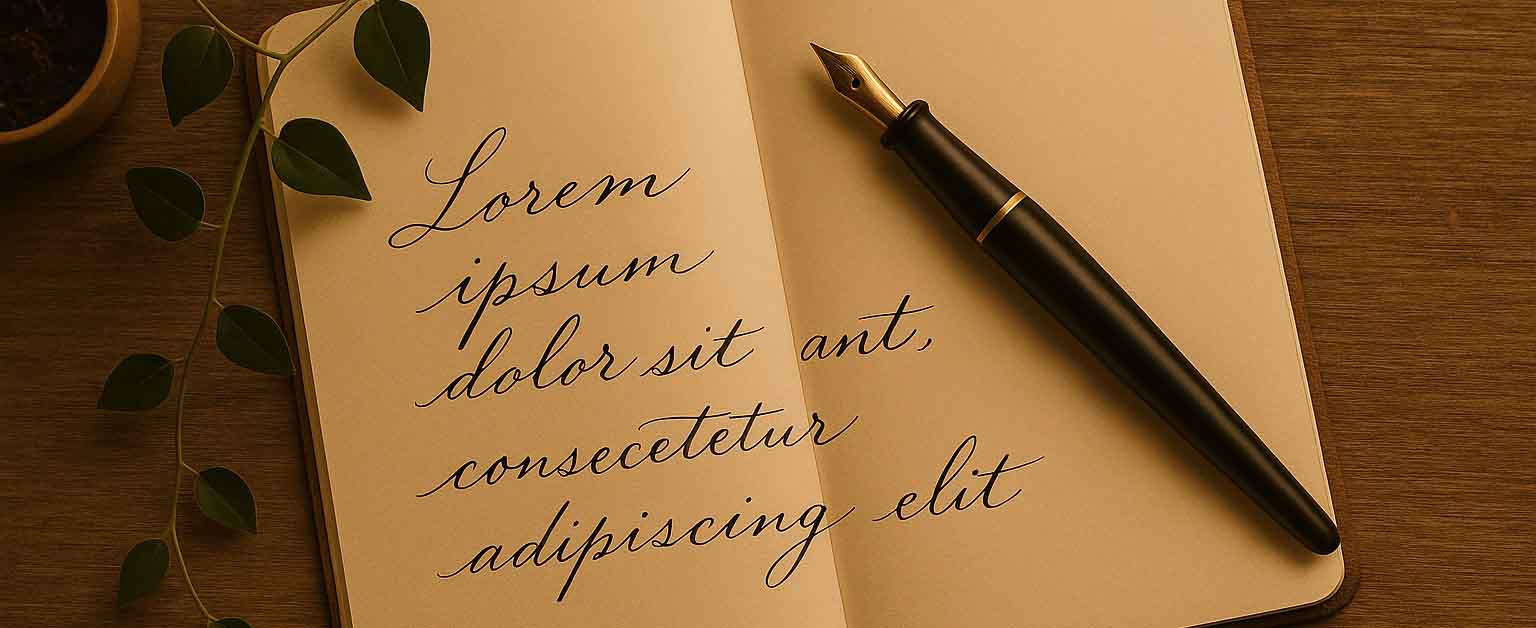 Lorem
ipsum
dolor sit ant,
consecetetur
adipiscing elit